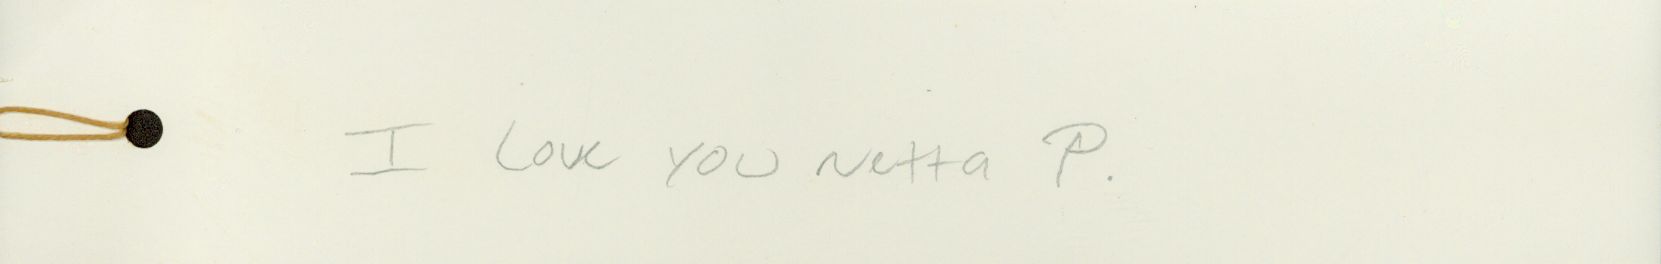 I Love you Netta P.